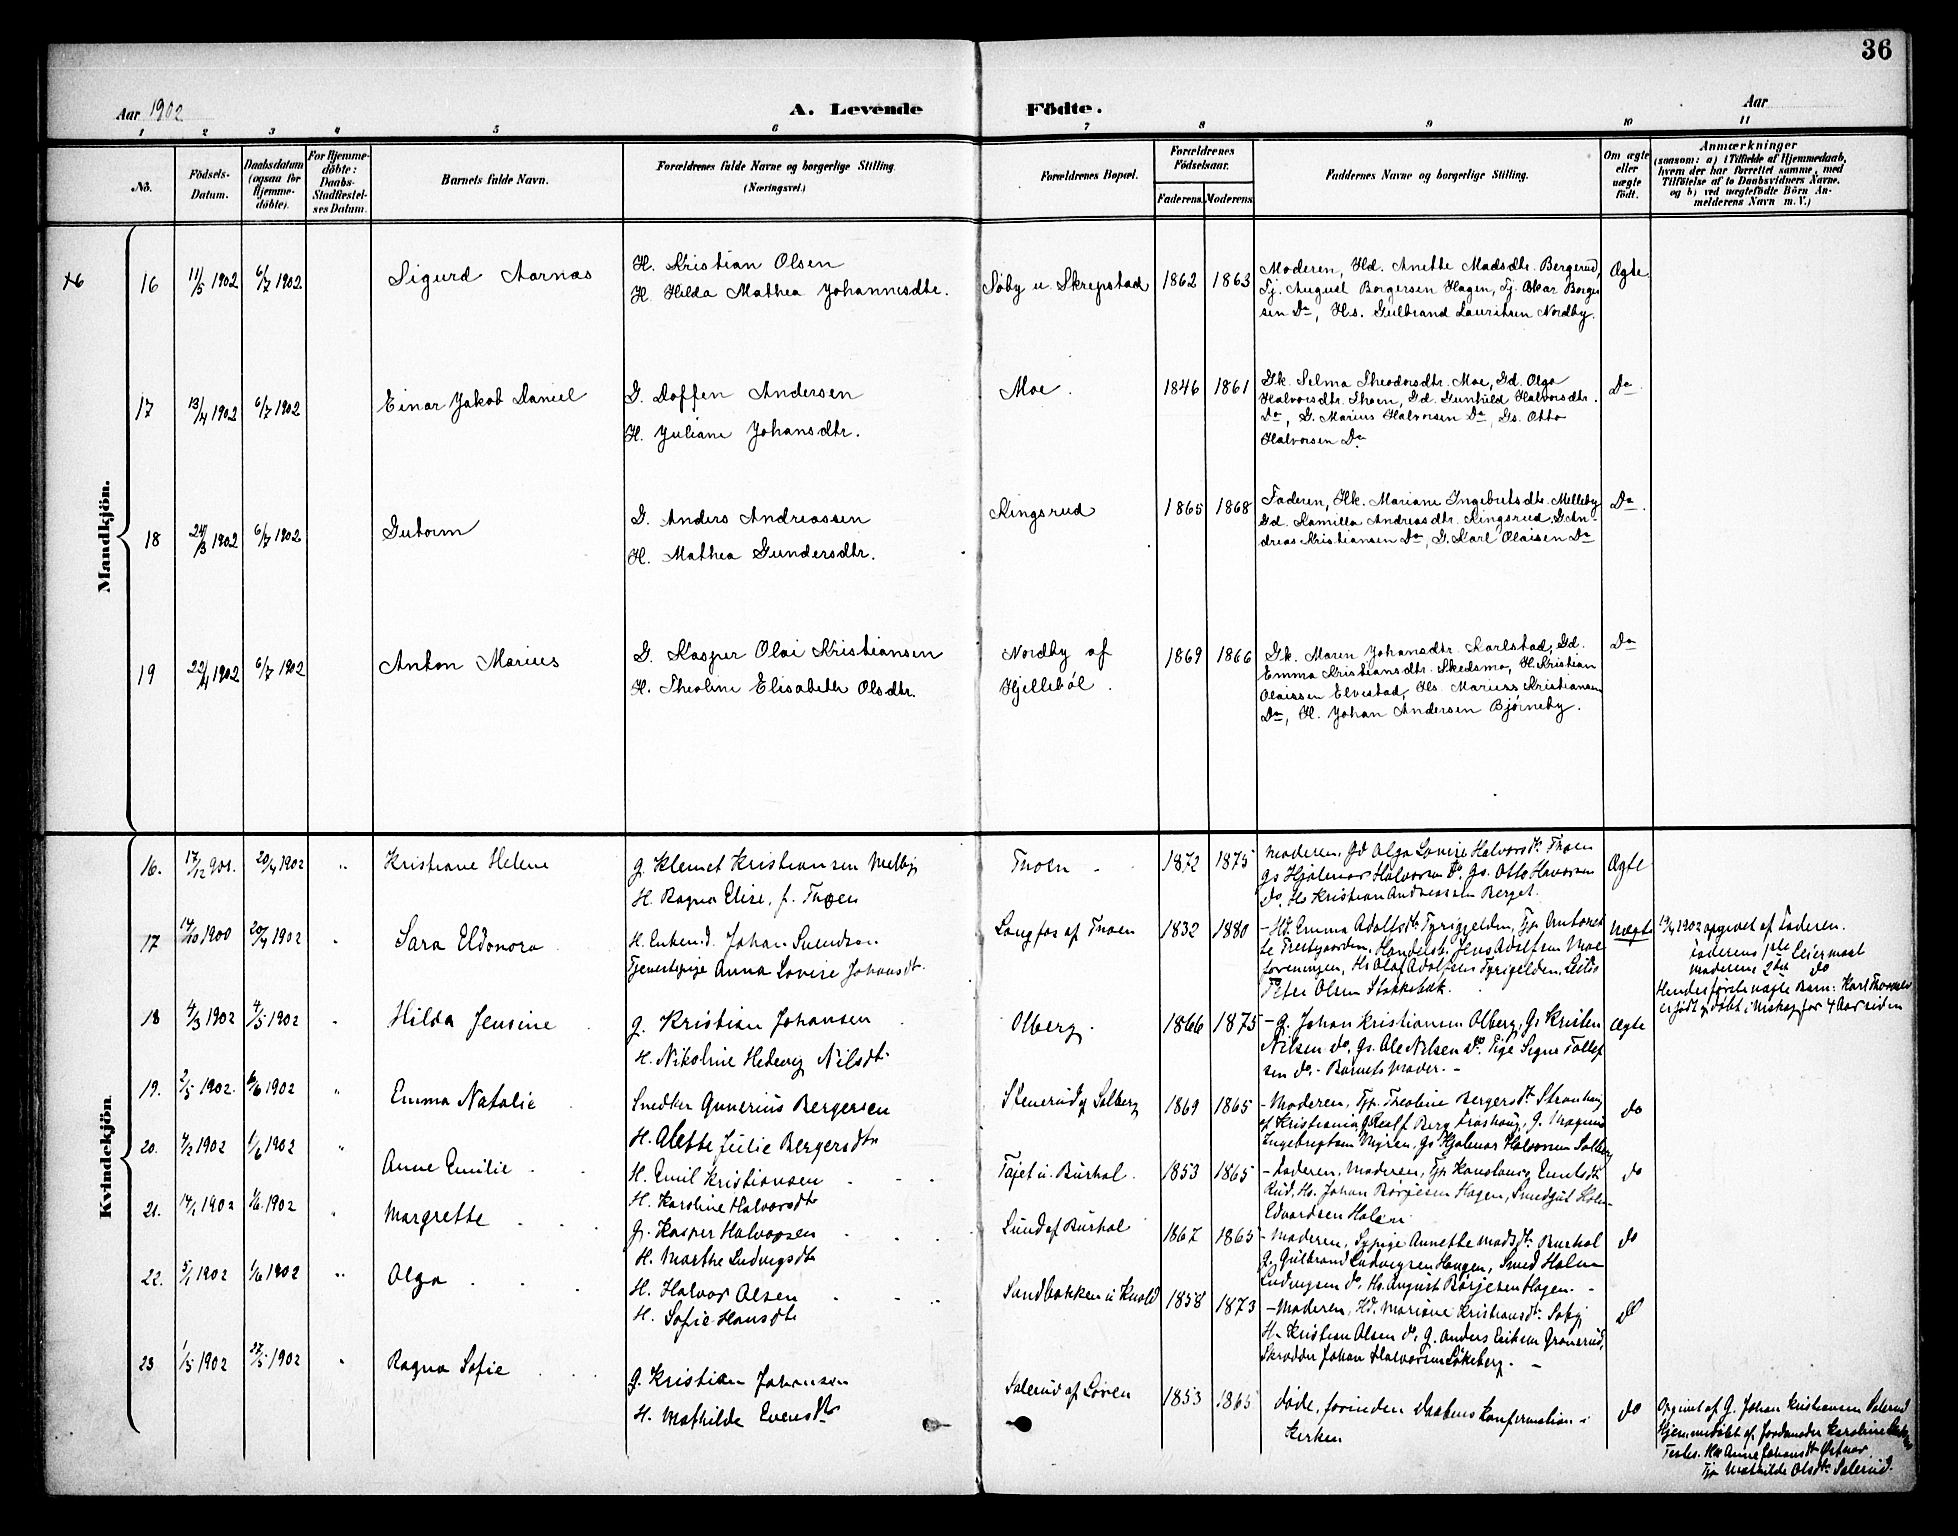 36
Aar 1902
A. Levende Födte.
Aar
1 2 3 4 5 6 7 8 9 10 11
No.
Födsels-Datum.
Daabsdatum (ogsaa for Hjemme-döbte).
For Hjemme-döbte: Daabs-Stadfæstel-ses Datum.
Barnets fulde Navn.
Forældrenes fulde Navne og borgerlige Stilling.
(Næringsvei.)
Forældrenes Bopæl.
Forældrenes Födselsaar.
Faderens. Moderens.
Faddernes Navne og borgerlige Stilling.
Om ægte eller uægte födt.
Anmærkninger
(saasom: a) i Tilfælde af Hjemmedaab,
hvem der har forrettet samme, med
Tilföielse af to Daabsvidners Navne,
og b) ved uægtefödte Börn An-
melderens Navn m. V.)
Mandkjön.
16 11/5 1902 6/7 1902 Sigurd Aarnas
H. Kristian Olsen
H Hilda Mathea Johannesdtr.
Søby u. Skrepstad 1862 1863
Moderen, Hd. Anette Madsdtr. Bergerud,
Tj. August Borgersen Hagen, Tj. Oskar Borger
sen Do, Hs. Gulbrand Lauritsen Nordby.
Ægte
17 13/4 1902 6/7 1902 Einar Jakob Daniel
G. Doffen Andersen
H. Juliane Johansdtr.
Moe. 1846 1861
Gk. Selma Theodorsdtr. Moe, Gd. Olga
Halvorsdtr. Thoen, Gd. Gunhild Halvorsdtr.
Do, G. Marius Halvorsen Do, Gs. Otto
Halvorsen Do
Do
18 24/3 1902 6/7 1902 Gutorm
G. Anders Andreassen
H. Mathea Gundersdtr.
Ringsrud 1865 1868
Faderen, Hk. Mariane Ingebretsdtr. Melleby
Gd. Kamilla Andreasdtr. Ringsrud, G. An-
dreas Kristiansen Do, G. Karl Olaisen Do
Do
19 22/4 1902 6/7 1902 Anton Marius
G. Kasper Olai Kristiansen
H. Theoline Elisabeth Olsdtr.
Nordby af
Hjellebøl. 1869 1866
Gk. Maren Johansdtr. Karlstad, Gd.
Emma Kristiansdtr. Skedsmo, H. Kristian
Olaissen Elvestad, Hs. Marius Kristiansen
Do, H. Johan Andersen Bjørneby.
Do
Kvindekjön
16. 17/12 901. 20/4 1902 " Kristiane Helene
G. Klemet Kristiansen Melby
H. Ragna Elise, f. Thoen
Thoen 1872 1875
Moderen, Gd Olga Lovise Halvorsdtr Thoen
Gs Hjalmar Halvorsen do, Gs. Otto Havorsen
do, Hs Kristian Andreassen Berget.
Ægte
17 14/10 1900 20/4 1902 " Sara Eldonora
H. Enkem.d. Johan Svendsen
Tjenestepige Anna Lovise Johansdtr.
Langfos af Thoen 1832 1880
- Hd. Emma Adolfsdtr Fyrigjelden, Tjp Antonet
te Prestgaarden, Handelsb. Jens Adolfsen Moe
foreningen, Hs Olaf Adolfsen Fyrigelden
Peter Olsen Stokkebæk.
Uægte
19/4 1902 opgivet af Faderen.
Faderens 1ste Leiermaal
Moderens 2det do
Hendes første uægte Barn: Karl
er født & døbt i for 4 Aar siden
18 4/3 1902 4/5 1902 " Hilda Jensine
G. Kristian Johansen
H. Nikoline Hedevig Nilsdtr
Olberg. 1866 1875
- G. Johan Kristiansen Olberg, Gs Kristen
Nilsen do, Gs. Ole Nilsen do. Pige Signe Tollef
sen do. - Barnets Moder. -
Ægte
19. 2/5 1902. 6/6 1902 " Emma Natalie
Snedker Gunerius Bergersen
H. Alette Julie Bergersdtr
Stenerud af Solberg 1869 1865
- Moderen, Tjp. Theoline Bergersdtr
af Kristiania, G. Berg G. Magnus
Ingebrigtsen Myren, Gs Hjalmar Halvorsen Solberg
do
20. 4/2 1902 1/6 1902 " Anne Emilie
H. Emil Kristiansen
H. Karoline Halvorsdtr
Tajet u. Burhol. 1853 1865
- Faderen, Moderen, Tjp
Rud, Hs. Johan Børjesen Hagen,
Edvardsen Holen
do
21. 14/1 1902 1/6 1902 " Margrette
G. Kasper Halvorsen
H. Marthe Ludvigsdtr
Lund af Burhol 1867 1865
- Moderen, Sypige Annette Madsdtr. Burhol
G. Gulbrand Ludvigsen Haugen, Smed
Ludvigsen do, Hs. August Børjesen Hagen. -
do
22. 5/1 1902 1/6 1902 " Olga
H. Halvor Olsen
H. Sofie Hansdtr
Sandbakken u Knold 1858 1873
- Moderen, Hd. Mariane Kristiansdtr Søby
H. Kristian Olsen do, G. Anders Eriksen Gronerud,
Skrædder Johan Halvorsen Løkeberg. -
do
23 1/5 1902 27/5 1902 " Ragna Sofie
G. Kristian Johansen
H. Mathilde Evensdtr
Salerud af Løken 1853 1865
døde, forinden Daabens Konfirmation i
Kirken
do
Opgivet af G. Johan Kristiansen Salerud
Hjemmedøbt af Jordemoder Karoline
Testes. Anne Johansdtr
Tjp Mathilde Olsdtr Salerud.